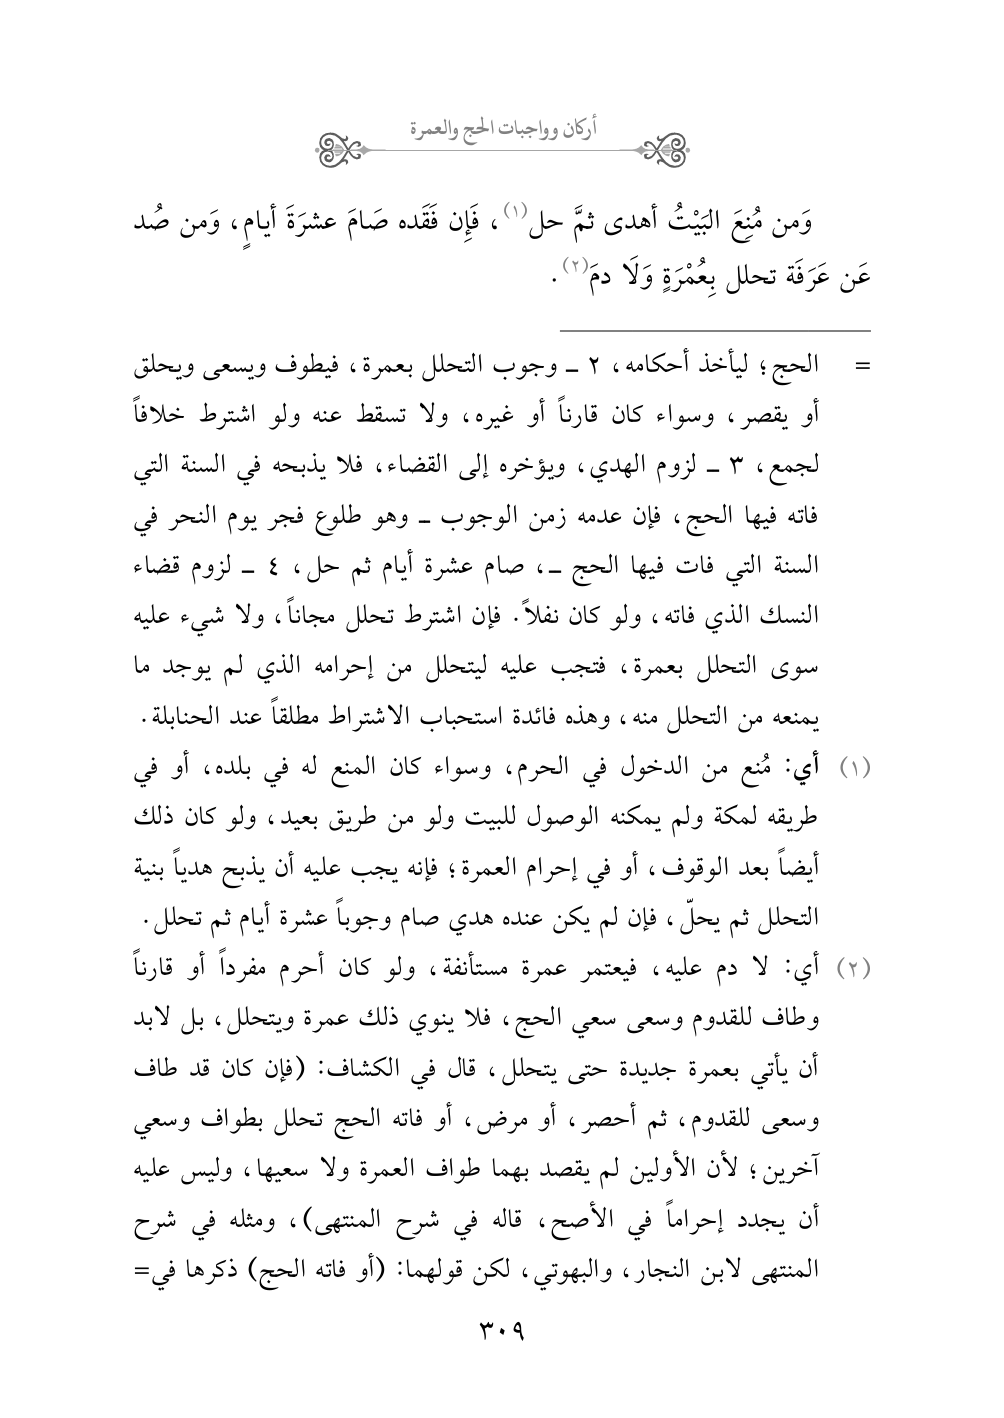 أركان وواجبات الحج والعمرة
وَمن مُنِعَ البَيْتُ أهدى ثمَّ حل(١)، فَإِن فَقَده صَامَ عشرَةَ أيامٍ، وَمن صُد
عَن عَرَفَة تحلل بِعُمْرَةٍ وَلَا دمَ(٢).
= الحج؛ ليأخذ أحكامه، ٢ ـ وجوب التحلل بعمرة، فيطوف ويسعى ويحلق
أو يقصر، وسواء كان قارناً أو غيره، ولا تسقط عنه ولو اشترط خلافاً
لجمع، ٣ ـ لزوم الهدي، ويؤخره إلى القضاء، فلا يذبحه في السنة التي
فاته فيها الحج، فإن عدمه زمن الوجوب ـ وهو طلوع فجر يوم النحر في
السنة التي فات فيها الحج ـ، صام عشرة أيام ثم حل، ٤ ـ لزوم قضاء
النسك الذي فاته، ولو كان نفلاً. فإن اشترط تحلل مجاناً، ولا شيء عليه
سوى التحلل بعمرة، فتجب عليه ليتحلل من إحرامه الذي لم يوجد ما
يمنعه من التحلل منه، وهذه فائدة استحباب الاشتراط مطلقاً عند الحنابلة.
(١) أي: مُنع من الدخول في الحرم، وسواء كان المنع له في بلده، أو في
طريقه لمكة ولم يمكنه الوصول للبيت ولو من طريق بعيد، ولو كان ذلك
أيضاً بعد الوقوف، أو في إحرام العمرة؛ فإنه يجب عليه أن يذبح هدياً بنية
التحلل ثم يحلّ، فإن لم يكن عنده هدي صام وجوباً عشرة أيام ثم تحلل.
(٢) أي: لا دم عليه، فيعتمر عمرة مستأنفة، ولو كان أحرم مفرداً أو قارناً
وطاف للقدوم وسعى سعي الحج، فلا ينوي ذلك عمرة ويتحلل، بل لابد
أن يأتي بعمرة جديدة حتى يتحلل، قال في الكشاف: (فإن كان قد طاف
وسعى للقدوم، ثم أحصر، أو مرض، أو فاته الحج تحلل بطواف وسعي
آخرين؛ لأن الأولين لم يقصد بهما طواف العمرة ولا سعيها، وليس عليه
أن يجدد إحراماً في الأصح، قاله في شرح المنتهى)، ومثله في شرح
المنتهى لابن النجار، والبهوتي، لكن قولهما: (أو فاته الحج) ذكرها في=
٣٠٩